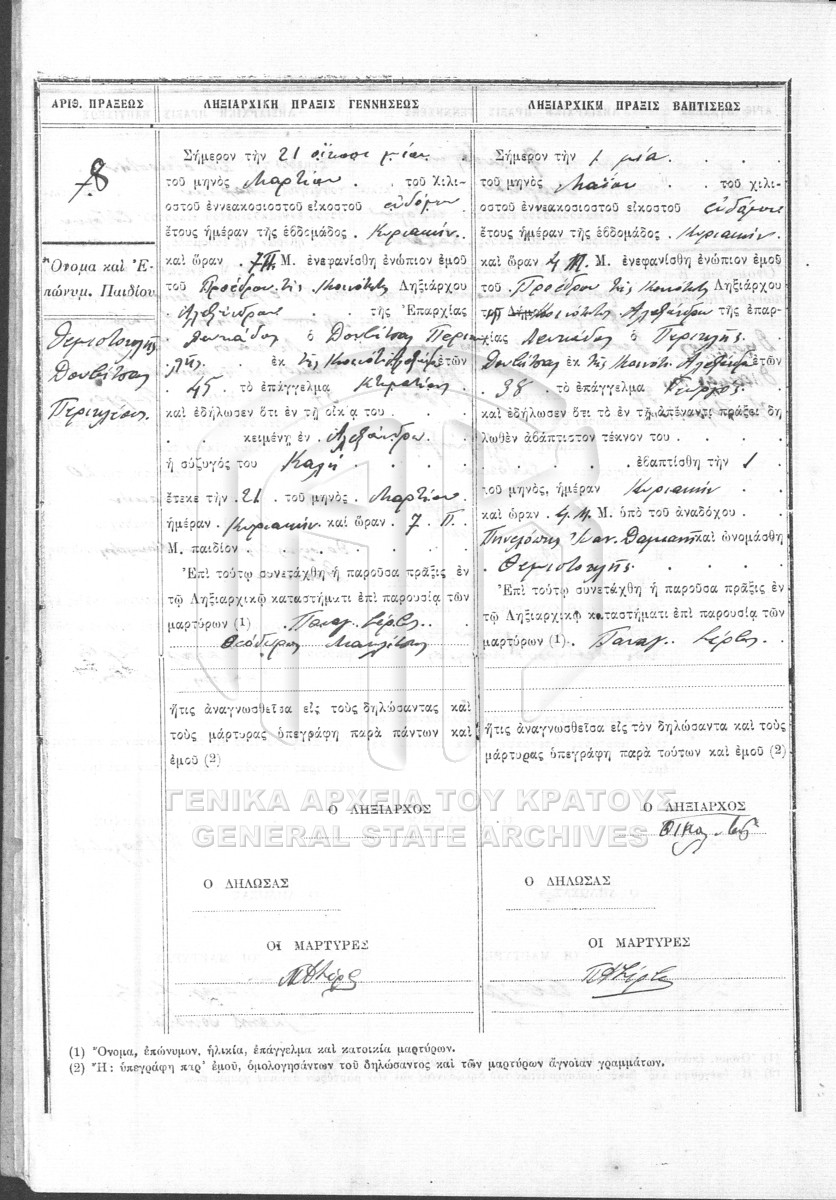 ΑΡΙΘ. ΠΡΑΞΕΩΣ
8
Ὄνομα καὶ Ἐ-
πώνυμ. Παιδίου
Θεμιστοκλῆς
Δουβίτσας
Περικλέους
ΛΗΞΙΑΡΧΙΚΗ ΠΡΑΞΙΣ ΓΕΝΝΗΣΕΩΣ
Σήμερον τὴν 21 εἴκοσι μίαν
τοῦ μηνὸς Μαρτίου . . τοῦ χιλι-
οστοῦ ἐννεακοσιοστοῦ εἰκοστοῦ ἑβδόμου
ἔτους ἡμέραν τῆς ἑβδομάδος . Κυριακὴν . .
καὶ ὥραν . 7 Π. Μ. ἐνεφανίσθη ἐνώπιον ἐμοῦ
τοῦ Προέδρου τῆς Κοινότητ. Ληξιάρχου
Ἀλεξάνδρου . . τῆς Ἐπαρχίας
Λευκάδος ὁ Δουβίτσας Περι-
κλῆς . ἐκ τῆς Κοινότ. Ἀλεξάνδρ. ἐτῶν
45 τὸ ἐπάγγελμα Κτηματίας .
καὶ ἐδήλωσεν ὅτι ἐν τῇ οἰκίᾳ του . . . .
. . κειμένῃ ἐν Ἀλεξάνδρῳ
ἡ σύζυγός του Καλὴ . . . .
ἔτεκε τὴν . 21 . τοῦ μηνὸς . Μαρτίου
ἡμέραν . Κυριακὴν . καὶ ὥραν . 7 . Π .
Μ. παιδίον . . . .
Ἐπὶ τούτῳ συνετάχθη ἡ παροῦσα πρᾶξις ἐν
τῷ Ληξιαρχικῷ καταστήματι ἐπὶ παρουσίᾳ τῶν
μαρτύρων (1) . Παναγ.
Θεόδωρος
ἥτις ἀναγνωσθεῖσα εἰς τοὺς δηλώσαντας καὶ
τοὺς μάρτυρας ὑπεγράφη παρὰ πάντων καὶ
ἐμοῦ (2)
Ο ΛΗΞΙΑΡΧΟΣ
Ο ΔΗΛΩΣΑΣ
ΟΙ ΜΑΡΤΥΡΕΣ
ΛΗΞΙΑΡΧΙΚΗ ΠΡΑΞΙΣ ΒΑΠΤΙΣΕΩΣ
Σήμερον τὴν 1 μία . . .
τοῦ μηνὸς Μαΐου . . τοῦ χιλι-
οστοῦ ἐννεακοσιοστοῦ εἰκοστοῦ ἑβδόμου
ἔτους ἡμέραν τῆς ἑβδομάδος . Κυριακὴν .
καὶ ὥραν 4 Μ. Μ. ἐνεφανίσθη ἐνώπιον ἐμοῦ
τοῦ Προέδρου τῆς Κοινότητ. Ληξιάρχου
Κοινότητ. Ἀλεξάνδρου τῆς ἐπαρ-
χίας Λευκάδος ὁ Περικλῆς .
Δουβίτσας ἐκ τῆς Κοινότ. Ἀλεξάνδρ. ἐτῶν
. 38 . τὸ ἐπάγγελμα Γεωργὸς .
καὶ ἐδήλωσεν ὅτι τὸ ἐν τῇ ἀπέναντι πράξει δη-
λωθὲν ἀβάπτιστον τέκνον του . . . . .
. . . . . . ἐβαπτίσθη τὴν 1
τοῦ μηνός, ἡμέραν Κυριακὴν . .
καὶ ὥραν . 4 Μ. Μ. ὑπὸ τοῦ ἀναδόχου .
Πηνελόπης καὶ ὠνομάσθη
. Θεμιστοκλῆς . . . . .
Ἐπὶ τούτῳ συνετάχθη ἡ παροῦσα πρᾶξις ἐν
τῷ Ληξιαρχικῷ καταστήματι ἐπὶ παρουσίᾳ τῶν
μαρτύρων (1) . Παναγ.
ἥτις ἀναγνωσθεῖσα εἰς τὸν δηλώσαντα καὶ τοὺς
μάρτυρας ὑπεγράφη παρὰ τούτων καὶ ἐμοῦ (2)
Ο ΛΗΞΙΑΡΧΟΣ
Ο ΔΗΛΩΣΑΣ
ΟΙ ΜΑΡΤΥΡΕΣ
ΓΕΝΙΚΑ ΑΡΧΕΙΑ ΤΟΥ ΚΡΑΤΟΥΣ
GENERAL STATE ARCHIVES
(1) Ὄνομα, ἐπώνυμον, ἡλικία, ἐπάγγελμα καὶ κατοικία μαρτύρων.
(2) Ἤ: ὑπεγράφη παρ' ἐμοῦ, ὁμολογησάντων τοῦ δηλώσαντος καὶ τῶν μαρτύρων ἄγνοιαν γραμμάτων.